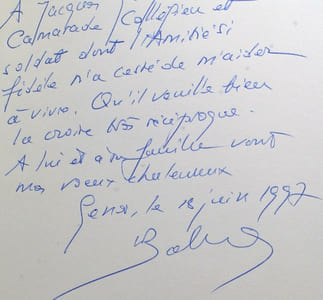 A Jacques Collègien et
Camarade
soldat dont l'Amitié si
fidèle n'a cessé de m'aider
à vivre. Qu'il veuille bien
la croire très réciproque.
A lui et à sa famille vont
mes vœux chaleureux
le 18 juin 1997